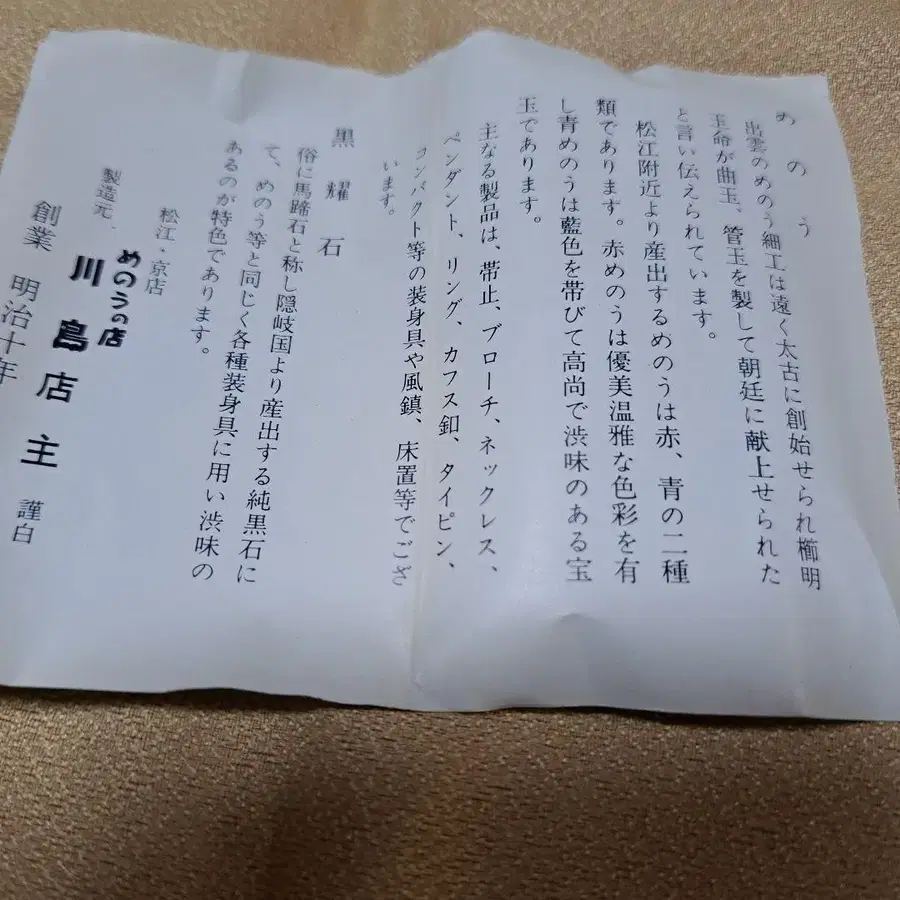 めのう
出雲のめのう細工は遠く太古に創始せられ櫛明
玉命が曲玉、管玉を製して朝廷に献上せられた
と言い伝えられています。
松江附近より産出するめのうは赤、青の二種
類であります。赤めのうは優美温雅な色彩を有
し青めのうは藍色を帯びて高尚で渋味のある宝
玉であります。
主なる製品は、帯止、ブローチ、ネックレス、
ペンダント、リング、カフス釦、タイピン、
コンパクト等の装身具や風鎮、床置等でござ
います。
黒耀石
俗に馬蹄石と称し隠岐国より産出する純黒石に
て、めのう等と同じく各種装身具に用い渋味の
あるのが特色であります。
松江・京店
製造元
めのうの店
川島店主 謹白
創業 明治十年